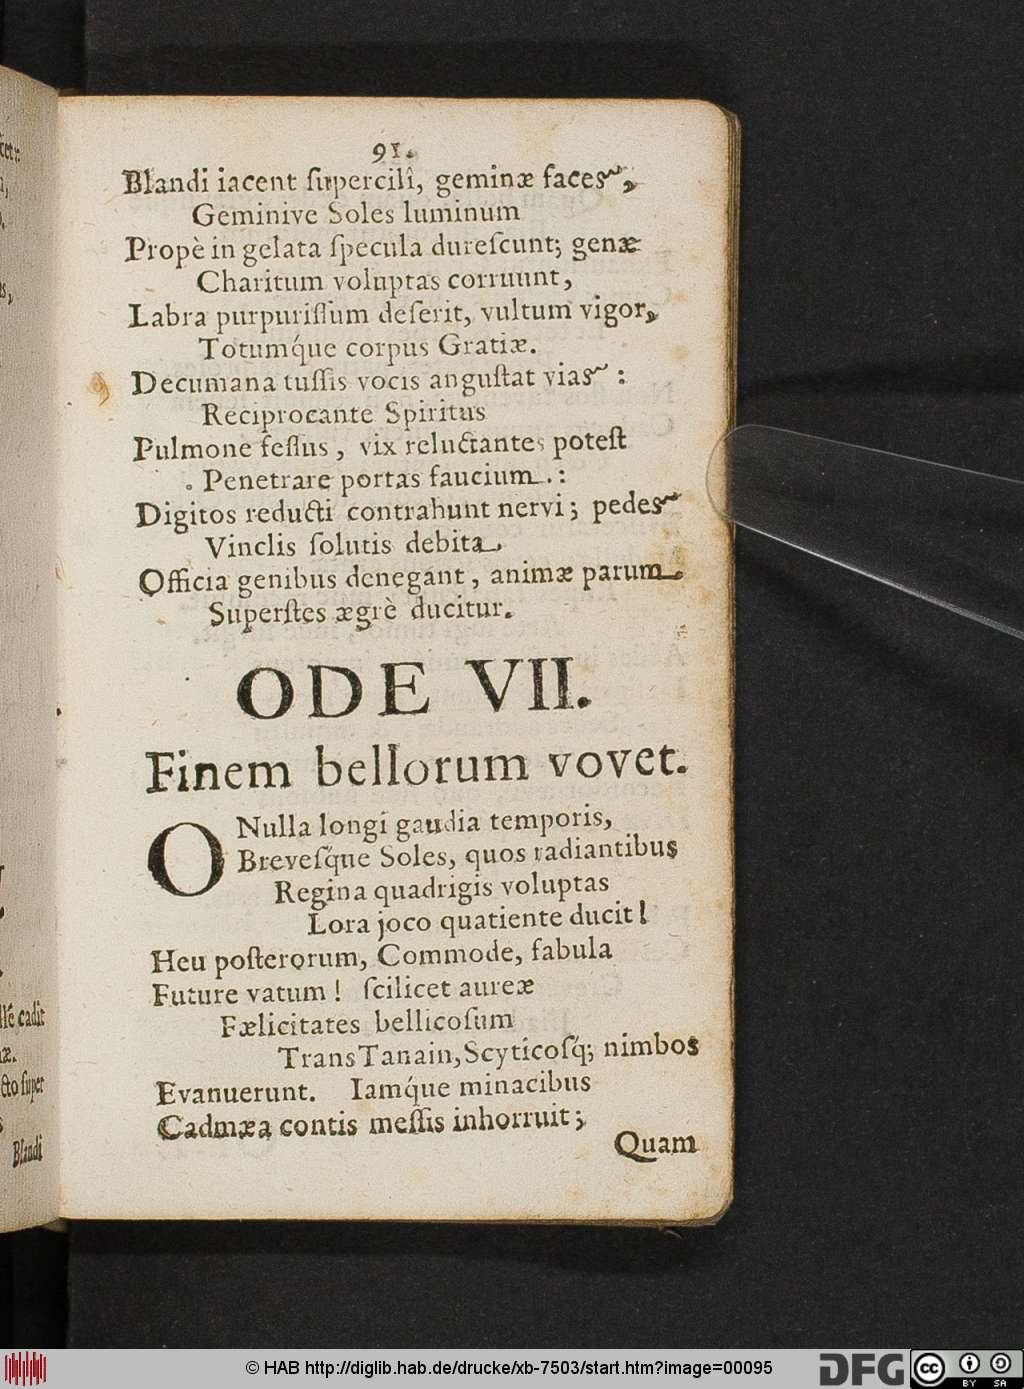 91.
Blandi iacent ſupercilî, geminæ faces,
Geminive Soles luminum
Propè in gelata ſpecula dureſcunt; genæ
Charitum voluptas corruunt,
Labra purpuriſſum deſerit, vultum vigor,
Totumq́ue corpus Gratiæ.
Decumana tuſſis vocis anguſtat vias :
Reciprocante Spiritus
Pulmone feſſus, vix reluctantes poteſt
Penetrare portas faucium.:
Digitos reducti contrahunt nervi; pedes
Vinclis ſolutis debita,
Officia genibus denegant, animæ parum.
Superſtes ægrè ducitur.
ODE VII.
Finem bellorum vovet.
O Nulla longi gaudia temporis,
Breveſq́ue Soles, quos radiantibus
Regina quadrigis voluptas
Lora joco quatiente ducit!
Heu poſterorum, Commode, fabula
Future vatum! ſcilicet aureæ
Fælicitates bellicoſum
Trans Tanain, Scyticoſq́; nimbos
Evanuerunt. Iamq́ue minacibus
Cadmæa contis meſſis inhorruit;
Quam
cadit
æ.
cto ſuper
Blandi
© HAB http://diglib.hab.de/drucke/xb-7503/start.htm?image=00095
DFG
cc BY SA